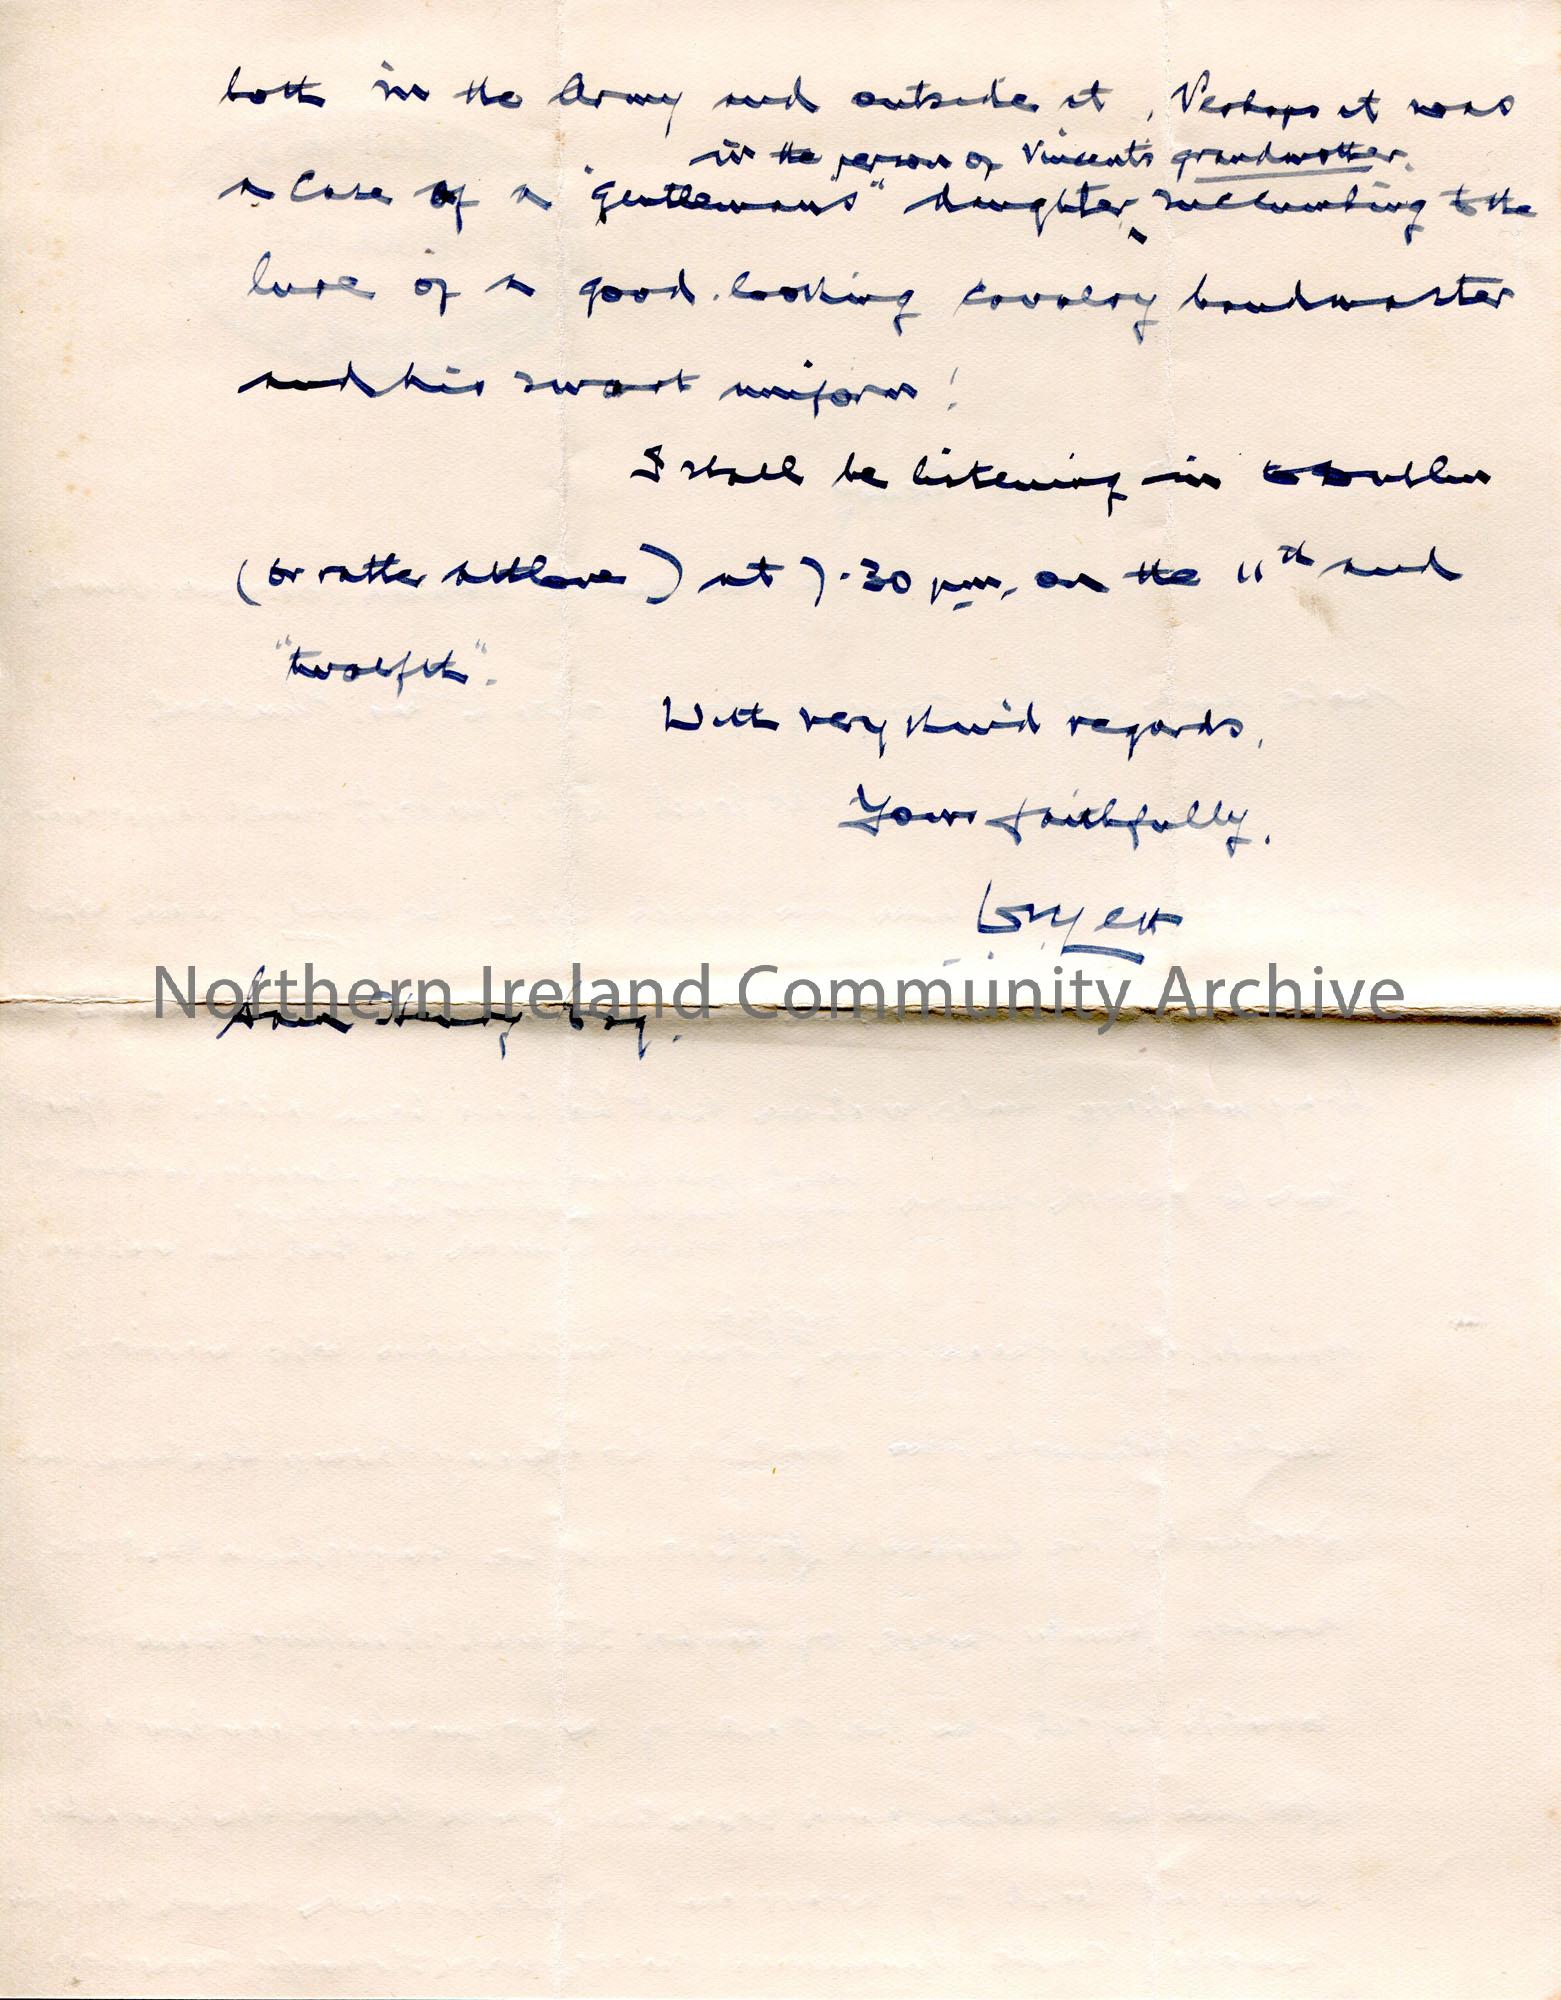 both in the Army and outside it, Perhaps it was
in the person of Vincent's grandmother.
a case of a "gentleman's" daughter, succumbing to the
lure of a good-looking cavalry bandmaster
and his smart uniform!
I shall be listening in to Dublin
(or rather Athlone) at 7.30 pm, on the 11th and
"twelfth".
With very kind regards,
Yours faithfully,
Northern Ireland Community Archive
Sam Henry Esq.